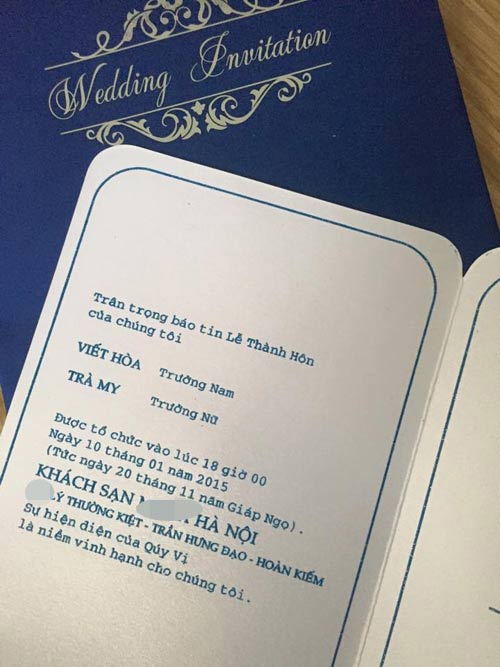 Wedding Invitation
Trân trọng báo tin Lễ Thành Hôn
của chúng tôi
VIẾT HÒA Trưởng Nam
TRÀ MY Trưởng Nữ
Được tổ chức vào lúc 18 giờ 00
Ngày 10 tháng 01 năm 2015
(Tức ngày 20 tháng 11 năm Giáp Ngọ).
KHÁCH SẠN HÀ NỘI
LÝ THƯỜNG KIỆT - TRẦN HƯNG ĐẠO - HOÀN KIẾM
Sự hiện diện của Qúy Vị
là niềm vinh hạnh cho chúng tôi.